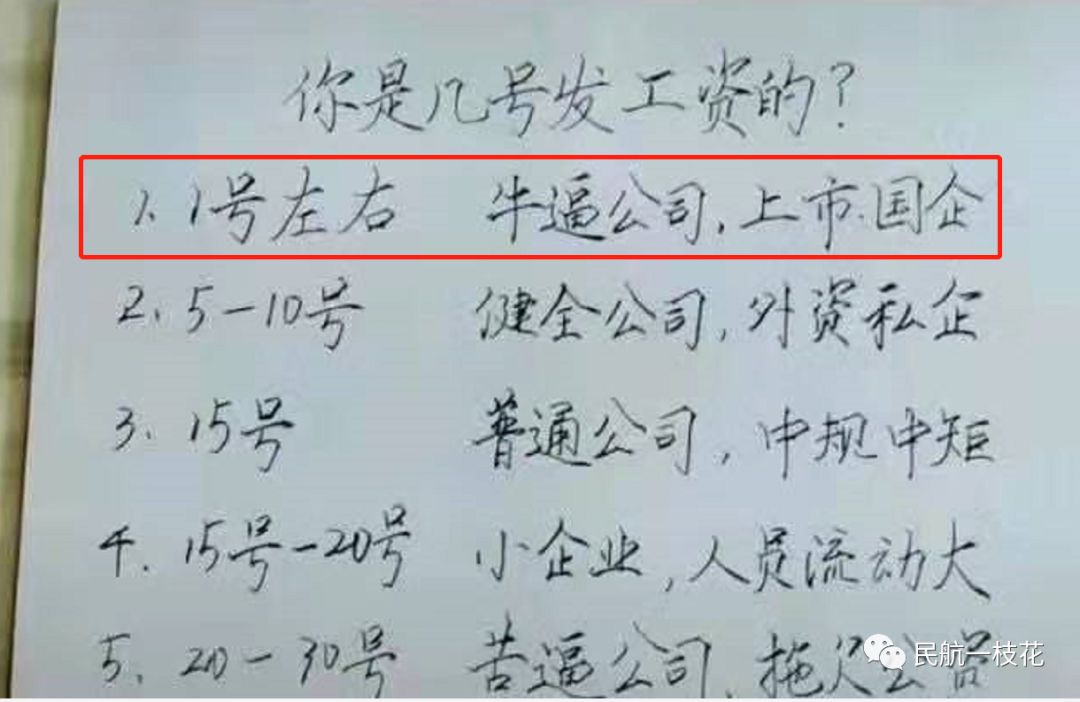 你是几号发工资的?
1、1号左右 牛逼公司,上市.国企
2、5-10号 健全公司,外资私企
3、15号 普通公司,中规中矩
4、15号-20号 小企业,人员流动大
5、20-30号 苦逼公司、拖欠公资
民航一枝花